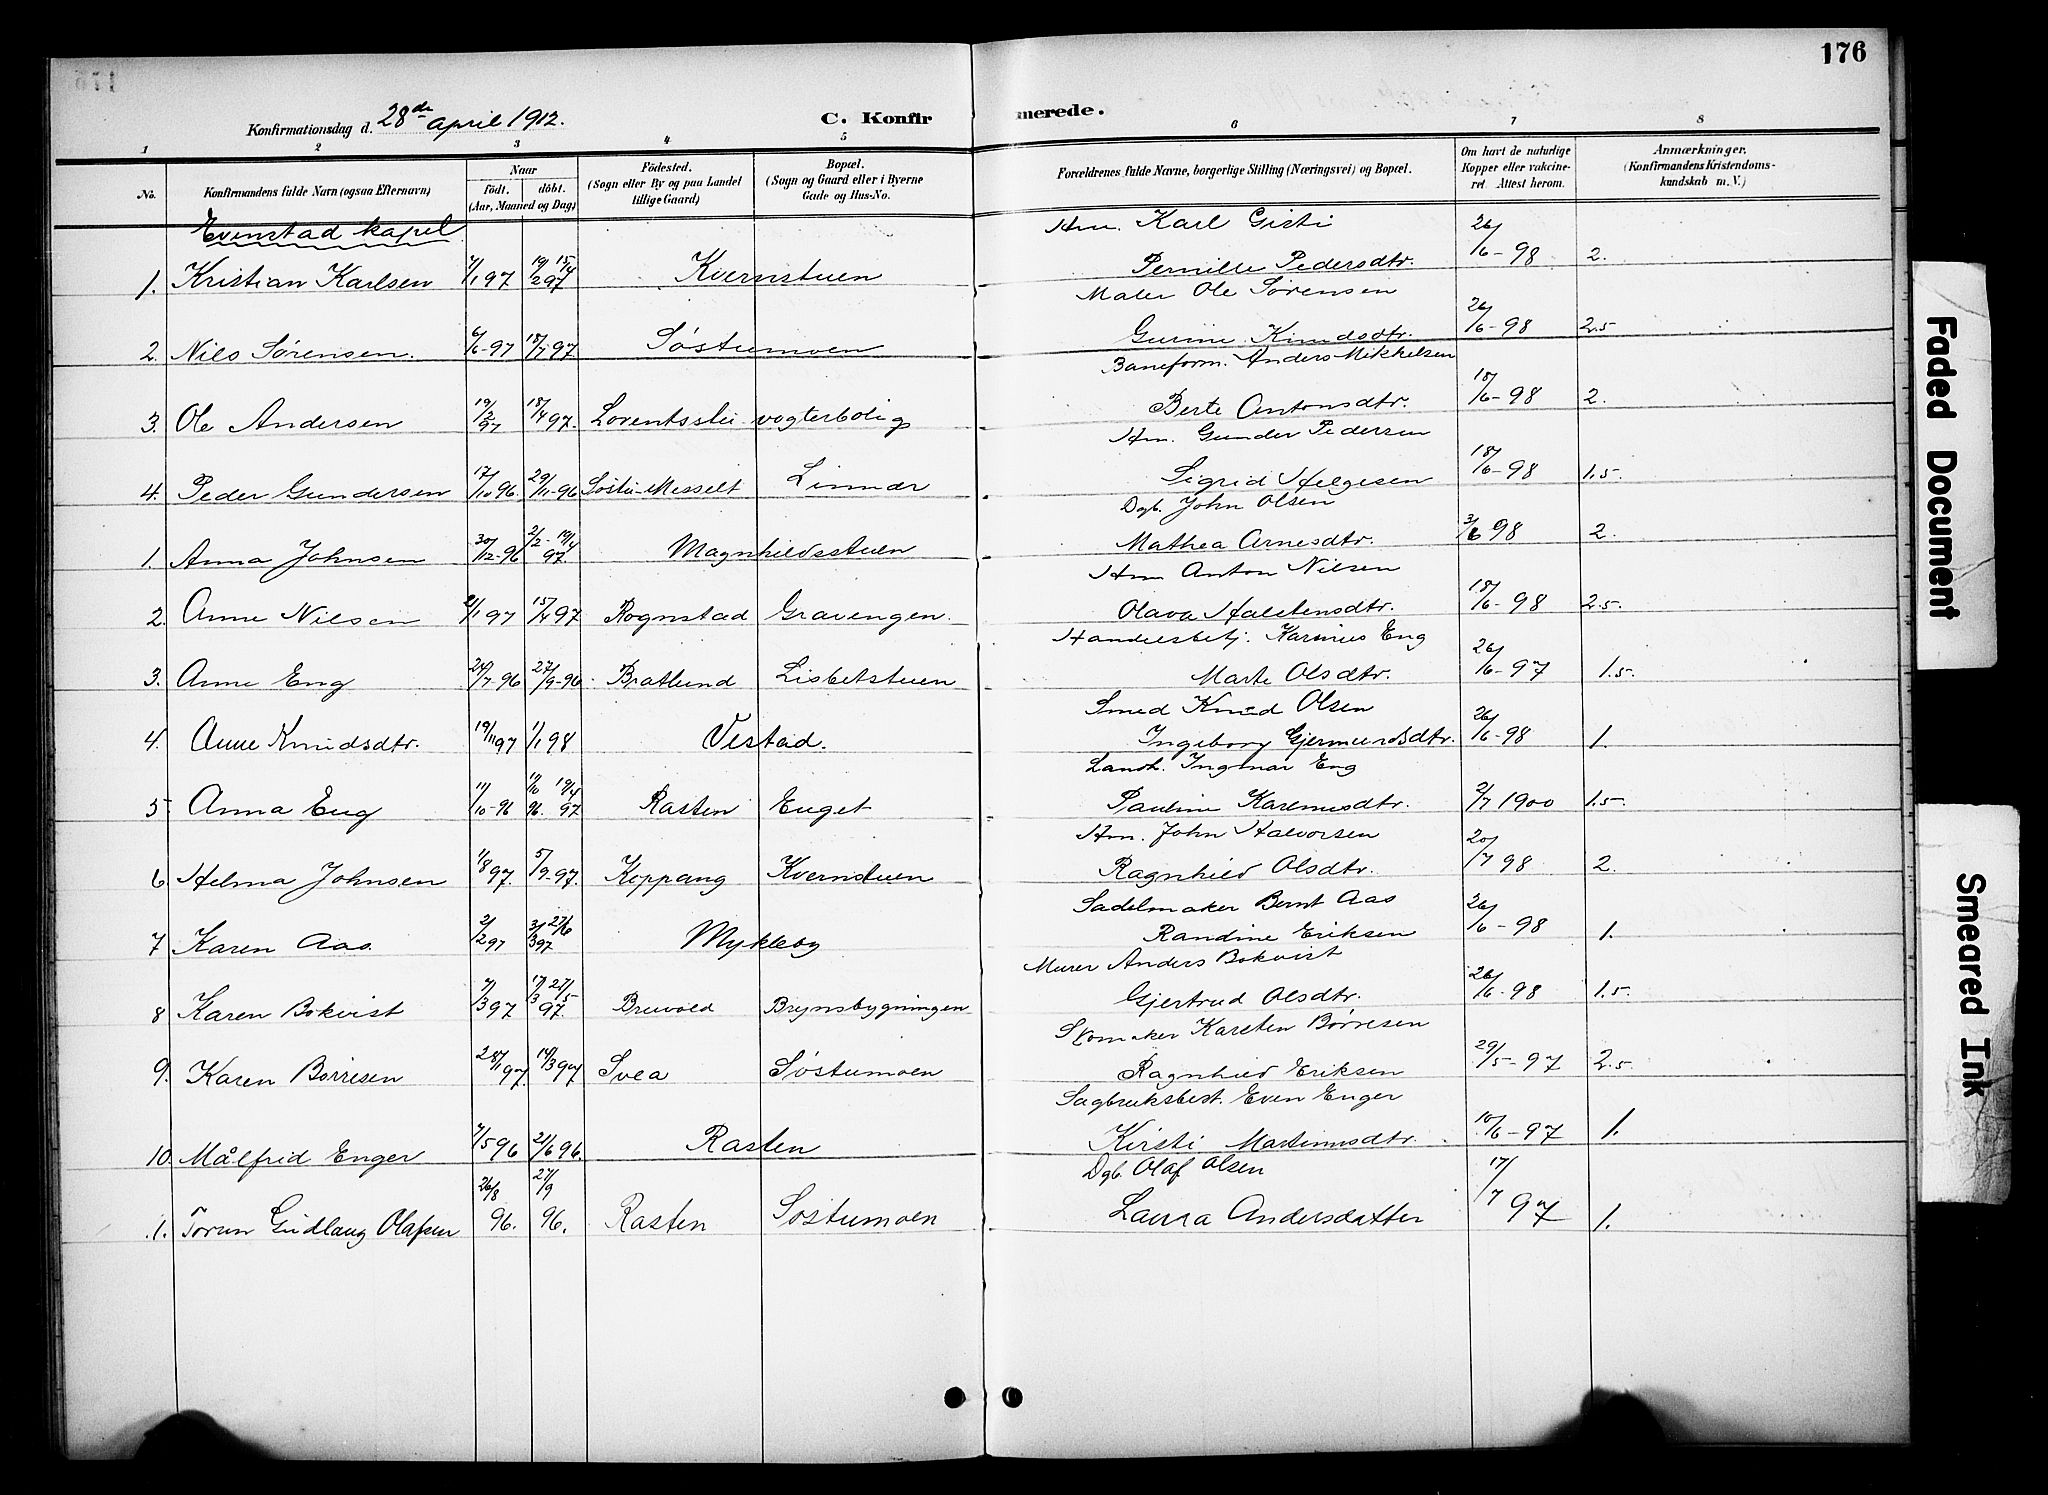 176
Konfirmationsdag d. 28de april 1912. C. Konfirmerede.
1 2 3 4 5 6 7 8
No. Konfirmandens fulde Navn (ogsaa Efternavn) Naar født. døbt. (Aar, Maaned og Dag) Födested. (Sogn eller By og paa Landet tillige Gaard) Bopæl. (Sogn og Gaard eller i Byerne Gade og Hus-No. Forældrenes fulde Navne, borgerlige Stilling (Næringsvei) og Bopæl. Om havt de naturlige Kopper eller vakcineret. Attest herom. Anmærkninger. (Konfirmandens Kristendomskundskab m. V.)
Evenstad kapel
1. Kristian Karlsen 7/1 97 19/2 15/4 97 Kvernstuen Hm. Karl Gisti Pernille Pedersdtr. 26/6-98 2.
2. Nils Sørensen. 6/6-97 18/7-97 Søstumoen Maler Ole Sørensen Gurine Knudsdtr. 26/6-98 2.5
3. Ole Andersen 19/2 97 18/4 97. Loventsstu vogterbolig Baneform. Anders Mikkelsen Berte Antonsdtr. 18/6-98 2.
4. Peder Gundersen 17/10 96. 29/11-96 Søstu-Messelt Linner Hm. Gunder Pedersen Sigrid Helgesen 18/6-98 1.5.
1. Anna Johnsen 30/12-96 2/2- 19/4 97. Magnhildsstuen Dgb. John Olsen Mathea Arnesdtr. 3/6 98 2.
2. Anne Nilsen 21/1 97 15/4 97 Rognstad Gravengen. Hm Anton Nilsen Olava Halstensdtr. 18/6-98 2.5.
3. Anne Eng 24/7-96 27/9-96 Bratlund Lisbetstuen Handelsbetj. Karinius Eng Marte Olsdtr. 26/6-97 1.5.
4. Anne Knudsdtr. 19/11 97 1/1 98 Vestad. Smed Knud Olsen Ingeborg Gjermundsdtr. 26/6-98 1.
5 Anna Eng 11/10-96 11/10 96. 19/4 97 Rasten Enget Landh. Ingmar Eng Pauline Karlmesdtr. 2/7 1900 1.5.
6 Helma Johnsen 1/8 97. 5/9-97. Koppang Kvernstuen Hm. John Halvorsen Ragnhild Olsdtr. 20/7 98 2.
7 Karen Aas 2/2 97 3/3 27/6 97 Mykleby Sadelmaker Bernt Aas Randine Eriksen 26/6-98 1.
8 Karen Bokvist 7/3 97 17/3 25/5 97. Bruvold Brynsbygningen Murer Anders Bokvist Gjertrud Olsdtr. 26/6-98 1.5.
9. Karen Børresen 28/1 97. 14/3 97 Svea Søstumoen Skomaker Karsten Børresen Ragnhild Eriksen 29/5-97 2.5.
10. Målfrid Enger 7/5 96 21/6 96. Rasten Sagbruksbest. Even Enger Kirsti Martinusdtr. 10/6-97 1.
1. Torun Gudlaug Olafsen 26/8 96. 27/9 96. Rasten Søstumoen Dgb. Olaf Olsen Laura Andersdatter 17/7 97 1.
Faded Document
Smeared Ink